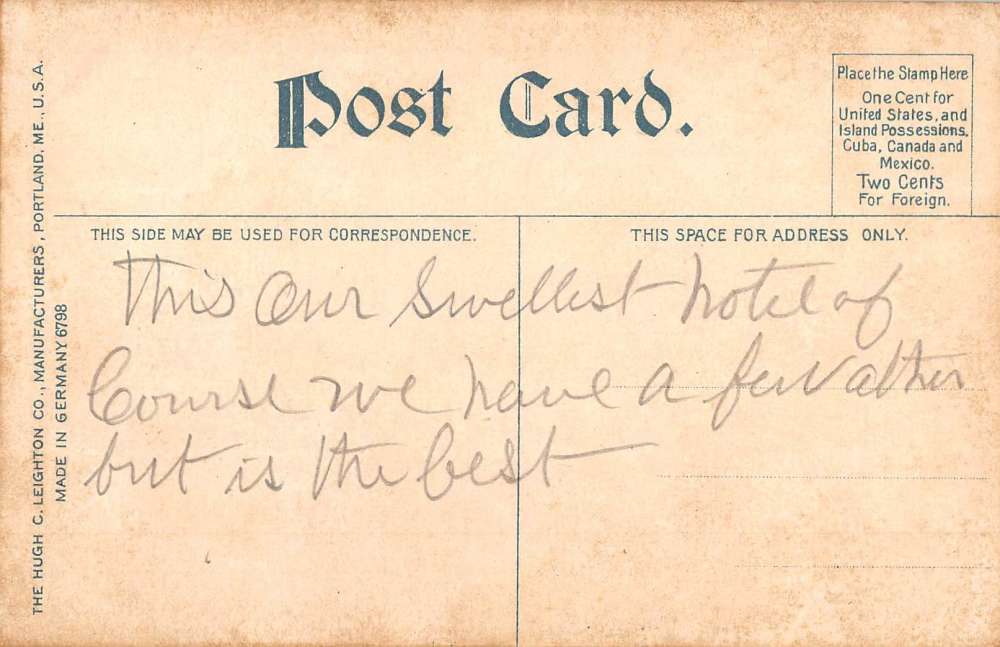 Post Card.
Place the Stamp Here
One Cent for
United States, and
Island Possessions,
Cuba, Canada and
Mexico.
Two Cents
For Foreign.
THIS SIDE MAY BE USED FOR CORRESPONDENCE.
THIS SPACE FOR ADDRESS ONLY.
This Our Swellest hotel of
Course we have a few other
but is the best
THE HUGH C. LEIGHTON CO., MANUFACTURERS, PORTLAND, ME., U.S.A.
MADE IN GERMANY 6798